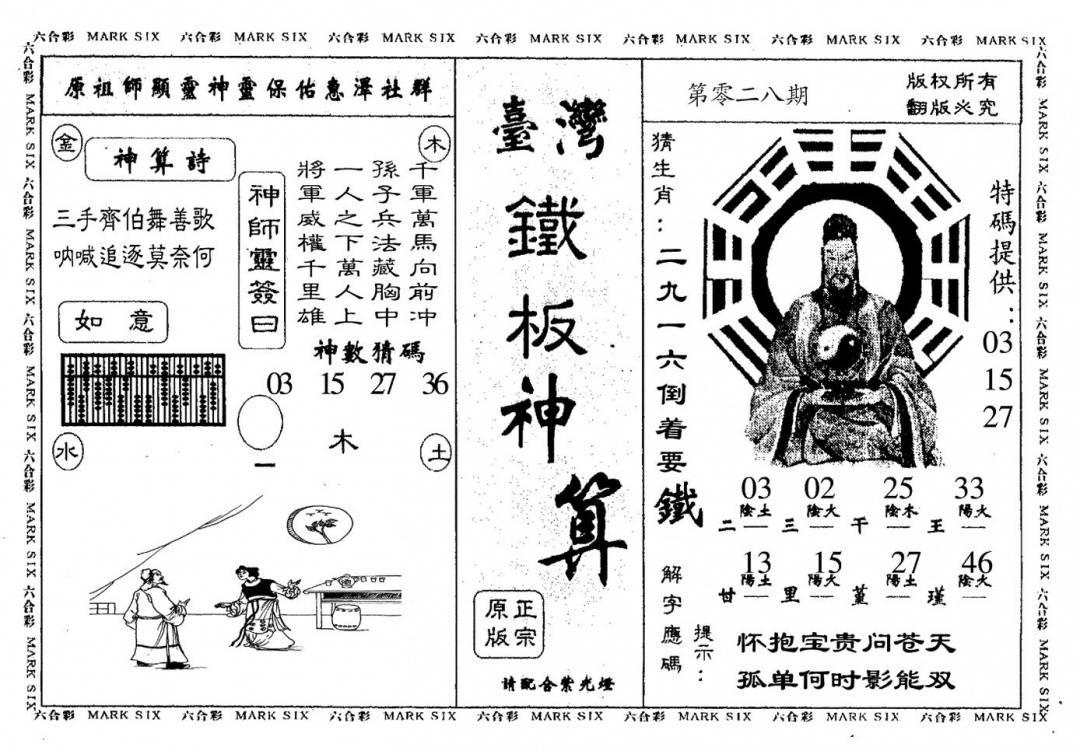 六合彩 MARK SIX 六合彩 MARK SIX 六合彩 MARK SIX 六合彩 MARK SIX 六合彩 MARK SIX 六合彩 MARK SIX 六合彩 MARK SIX
原祖師顯靈神靈保佑惠澤社群
金
木
神算詩
三手齊伯舞善歌
呐喊追逐莫奈何
如意
神師靈簽曰
千軍萬馬向前冲
孫子兵法藏胸中
一人之下萬人上
將軍威權千里雄
神數猜碼
03 15 27 36
木
水
土
臺灣
鐵板神算
正宗
原版
請配合紫光燈
第零二八期
版权所有
翻版必究
猜生肖:二九一六倒着要鐵
特碼提供:
03
15
27
03 02 25 33
陰土 陰火 陰木 陽火
二 三 干 王
13 15 27 46
陽土 陽火 陽土 陰火
甘 里 堇 瑾
解字應碼
提示:
怀抱宝贵问苍天
孤单何时影能双
六合彩 MARK SIX 六合彩 MARK SIX 六合彩 MARK SIX 六合彩 MARK SIX 六合彩 MARK SIX
六合彩 MARK SIX 六合彩 MARK SIX 六合彩 MARK SIX 六合彩 MARK SIX 六合彩 MARK SIX
六合彩 MARK SIX 六合彩 MARK SIX 六合彩 MARK SIX 六合彩 MARK SIX 六合彩 MARK SIX 六合彩 MARK SIX 六合彩 MARK SIX